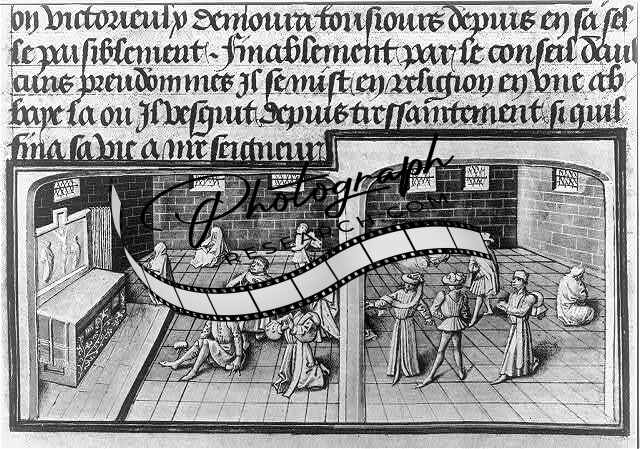 on victorieulx demoura tousiours depuis en sa sel
le paisiblement. finablement par le conseil dau
cuns preudommes Il se mist en religion en vne ab
baye la ou Il vesquit depuis tressaintement si quil
fina sa vie a nre seigneur
Photograph
RESEARCH.COM